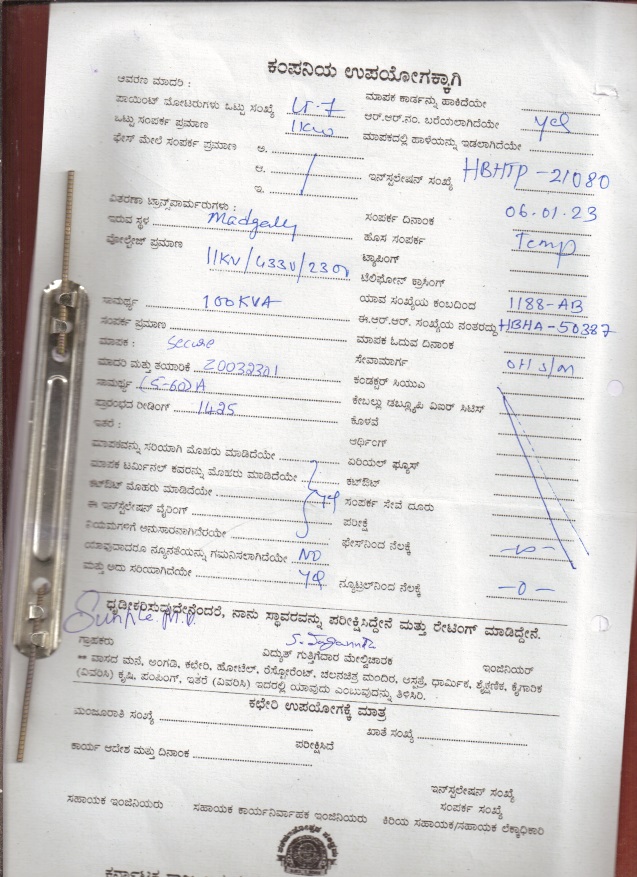 ಕಂಪನಿಯ ಉಪಯೋಗಕ್ಕಾಗಿ
ಆವರಣ ಮಾದರಿ :
ಮಾಪಕ ಕಾರ್ಡನ್ನು ಹಾಕಿದೆಯೇ
ಪಾಯಿಂಟ್ ಮೋಟರುಗಳು ಒಟ್ಟು ಸಂಖ್ಯೆ LT-7 ಆರ್.ಆರ್.ನಂ. ಬರೆಯಲಾಗಿದೆಯೇ yes
ಒಟ್ಟು ಸಂಪರ್ಕ ಪ್ರಮಾಣ 1KW ಮಾಪಕದಲ್ಲಿ ಹಾಳೆಯನ್ನು ಇಡಲಾಗಿದೆಯೇ
ಫೇಸ್ ಮೇಲೆ ಸಂಪರ್ಕ ಪ್ರಮಾಣ ಅ.
ಆ. ಇನ್‌ಸ್ಟಲೇಷನ್ ಸಂಖ್ಯೆ HBHTP-21080
ಇ.
ವಿತರಣಾ ಟ್ರಾನ್ಸ್‌ಫಾರ್ಮರುಗಳು : ಸಂಪರ್ಕ ದಿನಾಂಕ 06.01.23
ಇರುವ ಸ್ಥಳ Madgally ಹೊಸ ಸಂಪರ್ಕ Temp
ವೋಲ್ಟೇಜ್ ಪ್ರಮಾಣ 11KV/433V/230V ಟ್ಯಾಪಿಂಗ್
ಟೆಲಿಫೋನ್ ಕ್ರಾಸಿಂಗ್
ಸಾಮರ್ಥ್ಯ 100KVA ಯಾವ ಸಂಖ್ಯೆಯ ಕಂಬದಿಂದ 1188-AB
ಸಂಪರ್ಕ ಪ್ರಮಾಣ ಈ.ಆರ್.ಆರ್. ಸಂಖ್ಯೆಯ ನಂತರದ್ದು HBHA-50387
ಮಾಪಕ : Secure ಮಾಪಕ ಓದುವ ದಿನಾಂಕ
ಮಾದರಿ ಮತ್ತು ತಯಾರಿಕೆ 20032301 ಸೇವಾಮಾರ್ಗ OH s/m
ಸಾಮರ್ಥ್ಯ (5-60)A ಕಂಡಕ್ಟರ್ ಸಿಯುಎ
ಪ್ರಾರಂಭದ ರೀಡಿಂಗ್ 1425 ಕೇಬಲ್ಲು ಡಬ್ಲ್ಯೂಪಿ ವಿಐಆರ್ ಸಿಟಿಸ್
ಇತರೆ : ಕೊಳವೆ
ಅರ್ಥಿಂಗ್
ಮಾಪಕವನ್ನು ಸರಿಯಾಗಿ ಮೊಹರು ಮಾಡಿದೆಯೇ ಏರಿಯಲ್ ಫ್ಯೂಸ್
ಮಾಪಕ ಟರ್ಮಿನಲ್ ಕವರನ್ನು ಮೊಹರು ಮಾಡಿದೆಯೇ ಕಟ್‌ಔಟ್
ಕಟ್‌ಔಟ್ ಮೊಹರು ಮಾಡಿದೆಯೇ yes ಸಂಪರ್ಕ ಸೇವೆ ದೂರು
ಈ ಇನ್‌ಸ್ಟಲೇಷನ್ ವೈರಿಂಗ್ ಪರೀಕ್ಷೆ
ನಿಯಮಗಳಿಗೆ ಅನುಸಾರವಾಗಿದೆಯೇ ಫೇಸ್‌ನಿಂದ ನೆಲಕ್ಕೆ
ಯಾವುದಾದರೂ ನ್ಯೂನತೆಯನ್ನು ಗಮನಿಸಲಾಗಿದೆಯೇ NO
ಮತ್ತು ಅದು ಸರಿಯಾಗಿದೆಯೇ yes ನ್ಯೂಟ್ರಲ್‌ನಿಂದ ನೆಲಕ್ಕೆ -0-
ಧೃಡೀಕರಿಸುವುದೇನೆಂದರೆ, ನಾನು ಸ್ಥಾವರವನ್ನು ಪರೀಕ್ಷಿಸಿದ್ದೇನೆ ಮತ್ತು ರೇಟಿಂಗ್ ಮಾಡಿದ್ದೇನೆ.
ಗ್ರಾಹಕರು ವಿದ್ಯುತ್ ಗುತ್ತಿಗೆದಾರ ಮೇಲ್ವಿಚಾರಕ ಇಂಜಿನಿಯರ್
** ವಾಸದ ಮನೆ, ಅಂಗಡಿ, ಕಛೇರಿ, ಹೋಟೆಲ್, ರೆಸ್ಟೋರೆಂಟ್, ಚಲನಚಿತ್ರ ಮಂದಿರ, ಆಸ್ಪತ್ರೆ, ಧಾರ್ಮಿಕ, ಶೈಕ್ಷಣಿಕ, ಕೈಗಾರಿಕ
(ವಿವರಿಸಿ) ಕೃಷಿ, ಪಂಪಿಂಗ್, ಇತರೆ (ವಿವರಿಸಿ) ಇದರಲ್ಲಿ ಯಾವುದು ಎಂಬುವುದನ್ನು ತಿಳಿಸಿರಿ.
ಕಛೇರಿ ಉಪಯೋಗಕ್ಕೆ ಮಾತ್ರ
ಮಂಜೂರಾಕಿ ಸಂಖ್ಯೆ ಖಾತೆ ಸಂಖ್ಯೆ
ಪರೀಕ್ಷಿಸಿದೆ
ಕಾರ್ಯ ಆದೇಶ ಮತ್ತು ದಿನಾಂಕ
ಇನ್‌ಸ್ಟಲೇಷನ್ ಸಂಖ್ಯೆ
ಸಂಪರ್ಕ ಸಂಖ್ಯೆ
ಸಹಾಯಕ ಇಂಜಿನಿಯರು ಸಹಾಯಕ ಕಾರ್ಯನಿರ್ವಾಹಕ ಇಂಜಿನಿಯರು ಕಿರಿಯ ಸಹಾಯಕ/ಸಹಾಯಕ ಲೆಕ್ಕಾಧಿಕಾರಿ